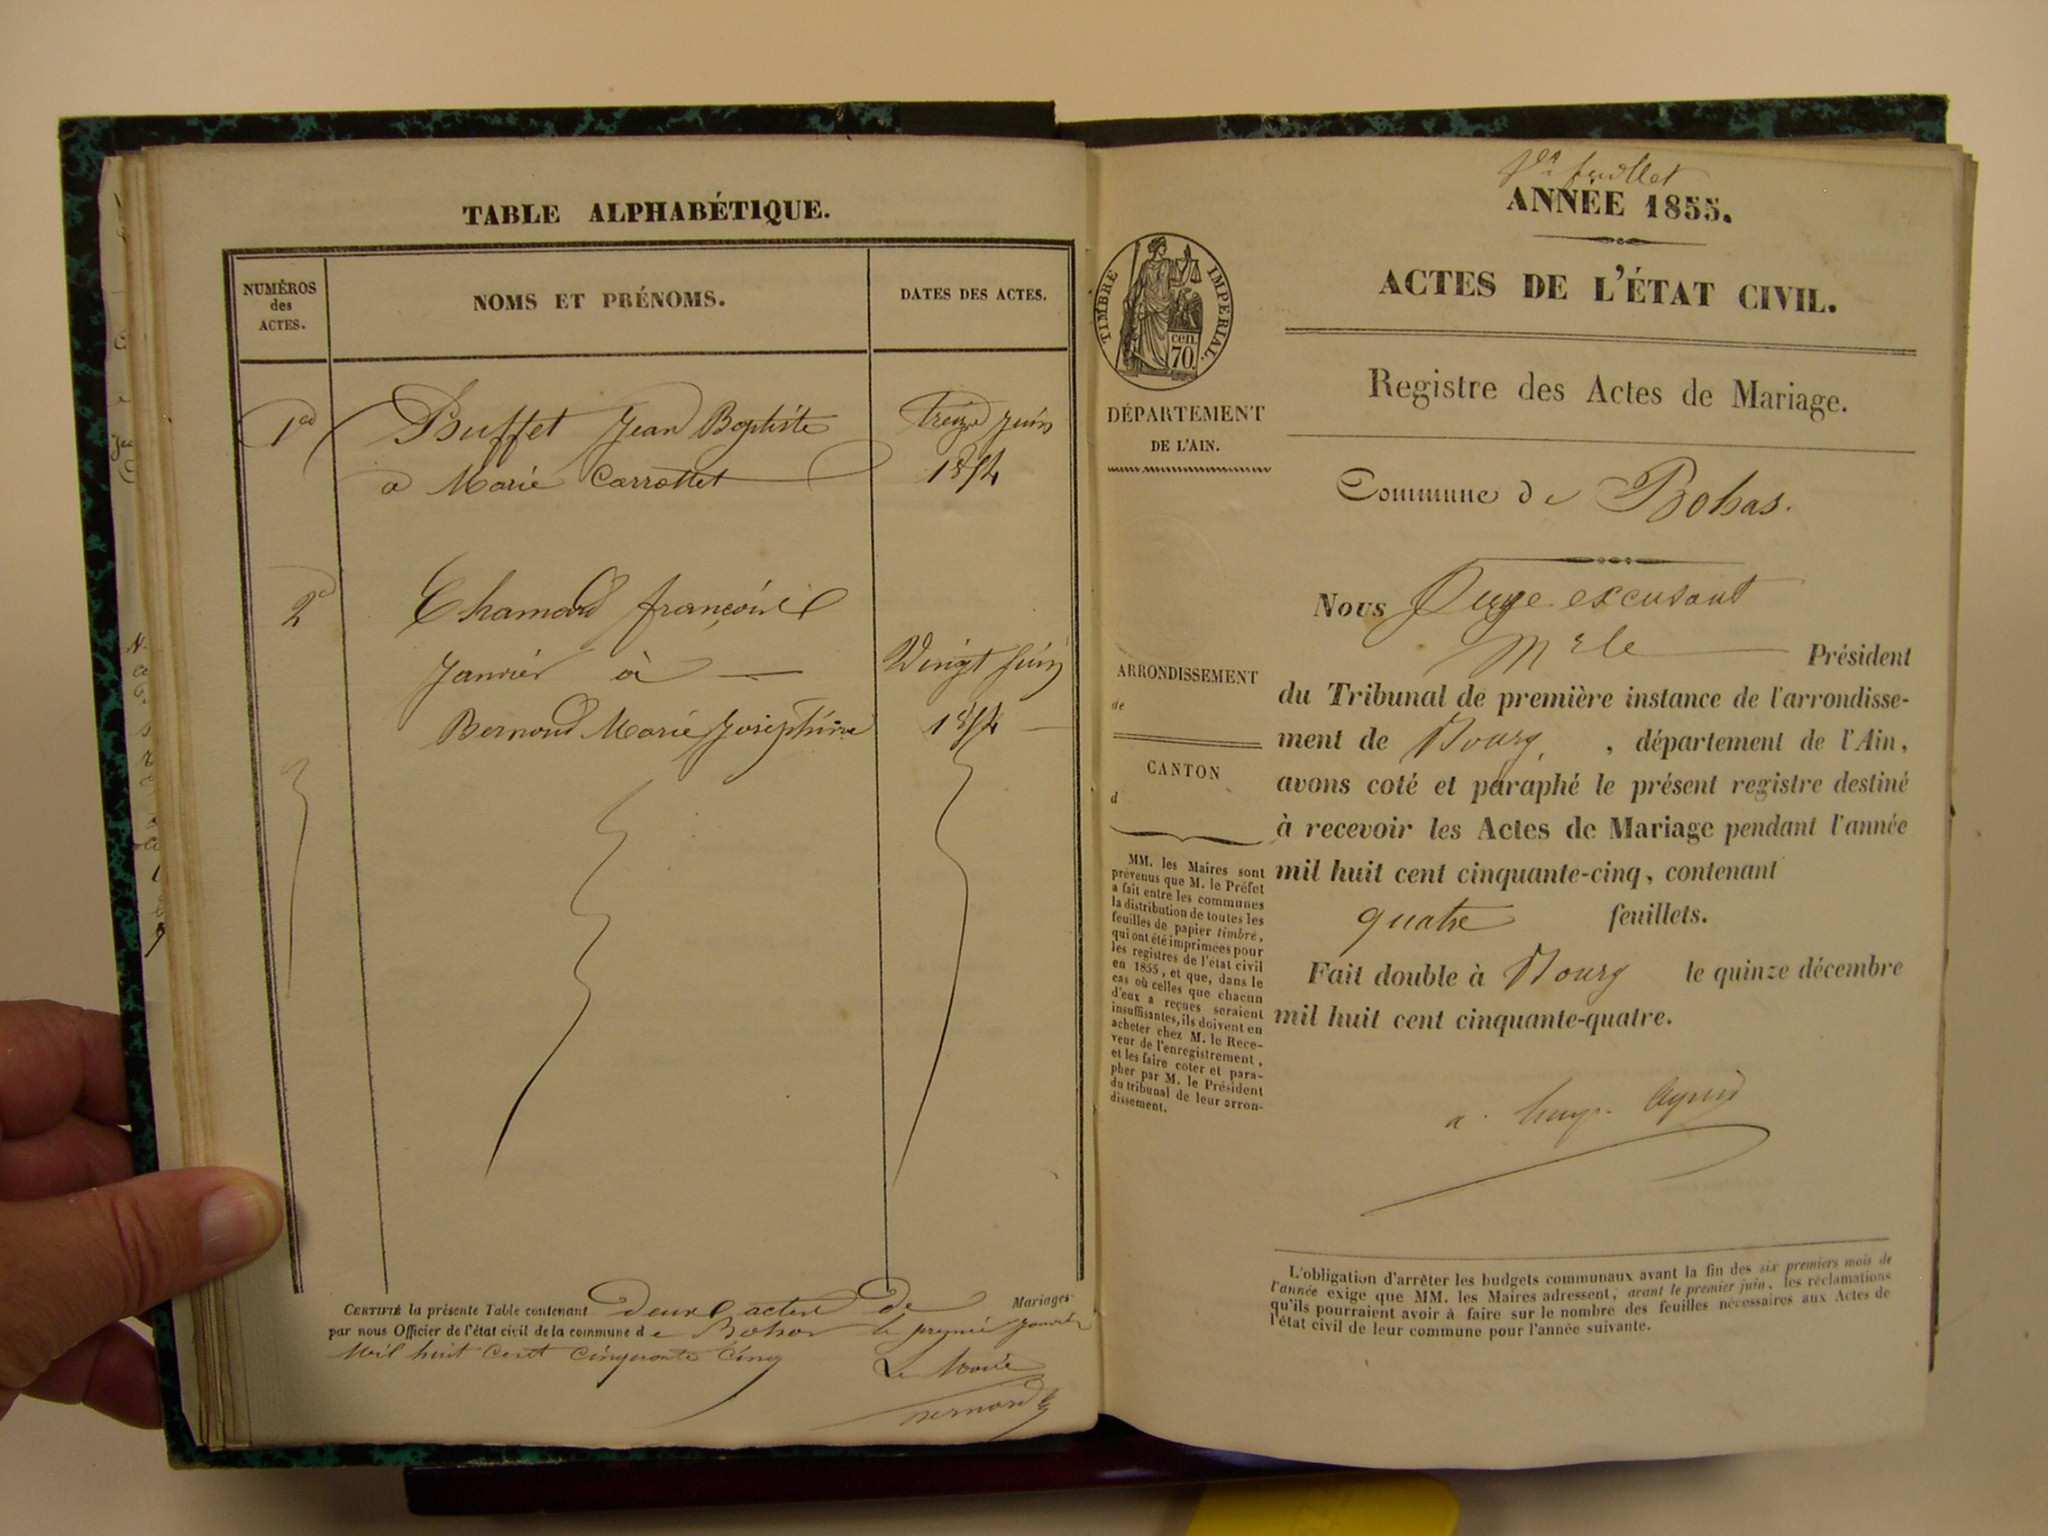 TABLE ALPHABÉTIQUE.
NUMÉROS
des
ACTES.
NOMS ET PRÉNOMS.
DATES DES ACTES.
1er
Buffet Jean Baptiste
Treize Juin
a Marie Carrottet
1854
2e
Chamard françois
Janvier à
Vingt Juin
Bernoud Marie Josephine
1854
CERTIFIÉ la présente Table contenant Deux actes de Mariages
par nous Officier de l'état civil de la commune de Bohas le premier Janvier
Mil huit Cent Cinquante Cinq
Le Maire
Bernoud
1er feuillet
ANNÉE 1855.
ACTES DE L'ÉTAT CIVIL.
TIMBRE IMPERIAL.
cen.
70.
Registre des Actes de Mariage.
DÉPARTEMENT
DE L'AIN.
Commune de Bohas.
Nous Juge excusant
Mr le Président
ARRONDISSEMENT
de
CANTON
d
du Tribunal de première instance de l'arrondisse-
ment de Bourg, département de l'Ain,
avons coté et paraphé le présent registre destiné
à recevoir les Actes de Mariage pendant l'année
mil huit cent cinquante-cinq, contenant
quatre feuillets.
Fait double à Bourg le quinze décembre
mil huit cent cinquante-quatre.
MM. les Maires sont
prévenus que M. le Préfet
a fait entre les communes
la distribution de toutes les
feuilles de papier timbré,
qui ont été imprimées pour
les registres de l'état civil
en 1855, et que, dans le
cas où celles que chacun
d'eux a reçues seraient
insuffisantes, ils doivent en
acheter chez M. le Rece-
veur de l'enregistrement,
et les faire coter et para-
pher par M. le Président
du tribunal de leur arron-
dissement.
L'obligation d'arrêter les budgets communaux avant la fin des six premiers mois de
l'année exige que MM. les Maires adressent, avant le premier juin, les réclamations
qu'ils pourraient avoir à faire sur le nombre des feuilles nécessaires aux Actes de
l'état civil de leur commune pour l'année suivante.